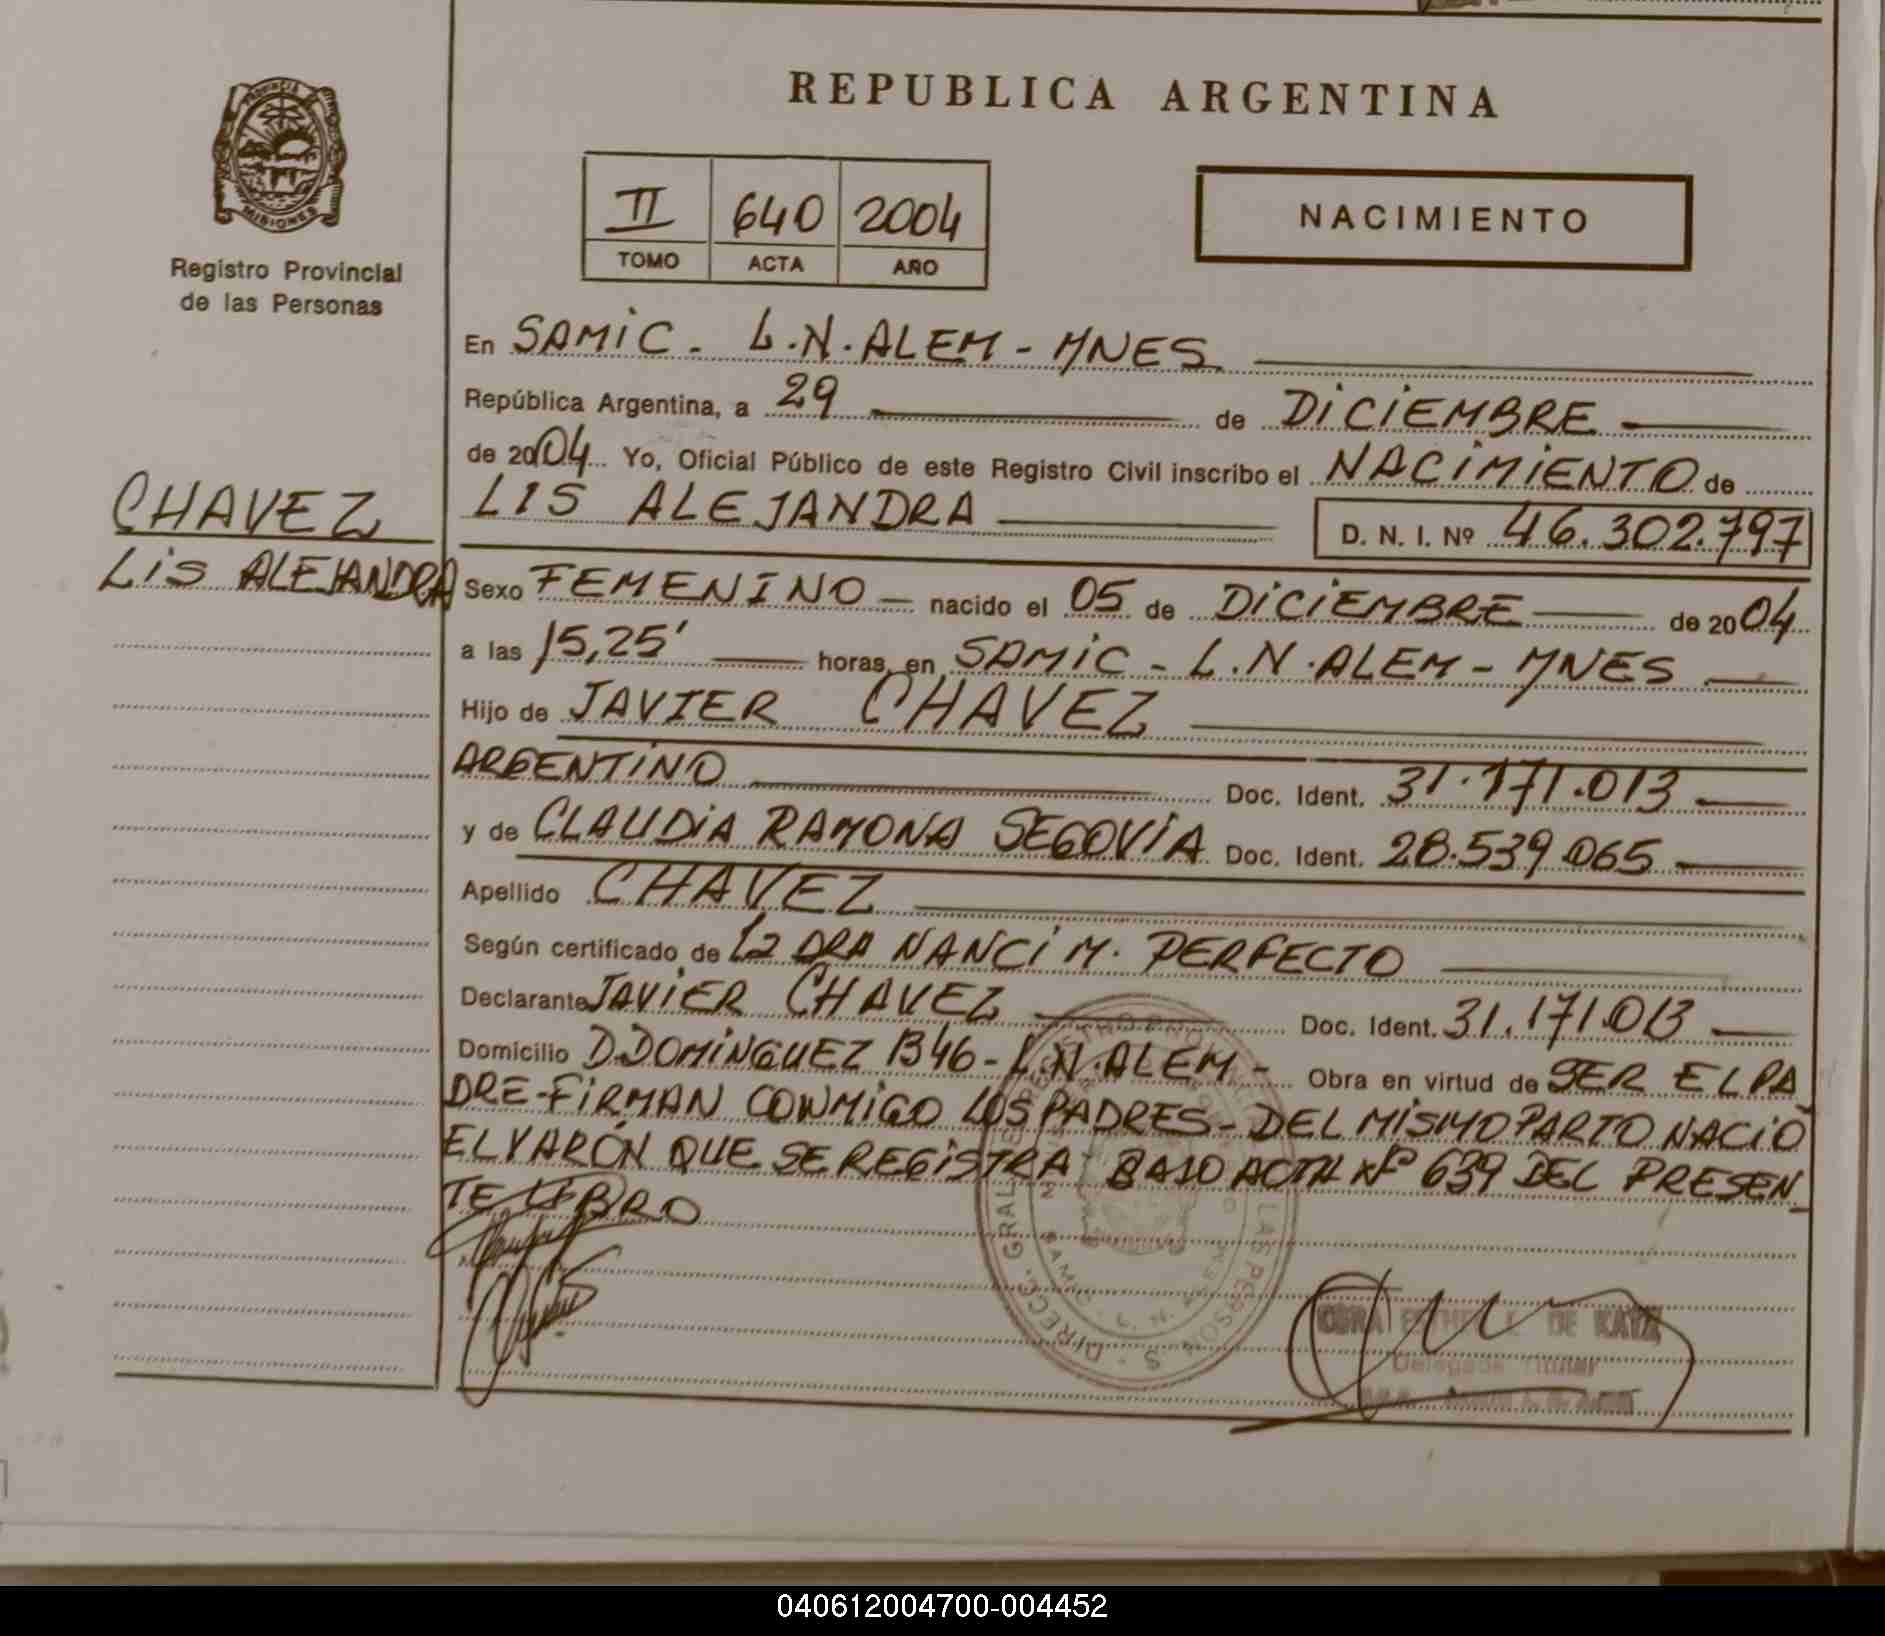 REPUBLICA ARGENTINA
PROVINCIA DE
MISIONES
Registro Provincial
de las Personas
II 640 2004
TOMO ACTA AÑO
NACIMIENTO
En SAMIC - L.N. ALEM - MNES
República Argentina, a 29 de DICIEMBRE
de 2004 Yo, Oficial Público de este Registro Civil inscribo el NACIMIENTO de
LIS ALEJANDRA D. N. I. Nº 46.302.797
CHAVEZ
LIS ALEJANDRA
Sexo FEMENINO nacido el 05 de DICIEMBRE de 2004
a las 15,25' horas, en SAMIC - L.N. ALEM - MNES
Hijo de JAVIER CHAVEZ
ARGENTINO Doc. Ident. 31.171.013
y de CLAUDIA RAMONA SEGOVIA Doc. Ident. 28.539.065
Apellido CHAVEZ
Según certificado de La DRA NANCI M. PERFECTO
Declarante JAVIER CHAVEZ Doc. Ident. 31.171.013
Domicilio D. DOMINGUEZ B46 - L.N. ALEM - Obra en virtud de SER EL PA
DRE - FIRMAN CONMIGO LOS PADRES - DEL MISMO PARTO NACIÓ
EL VARÓN QUE SE REGISTRA BAJO ACTA Nº 639 DEL PRESEN
TE LIBRO
DIRECC. GRAL. DE REGISTRO PROVINCIAL DE LAS PERSONAS
SAMIC - L. N. ALEM
DE KAYA
Delegada Titular
040612004700-004452